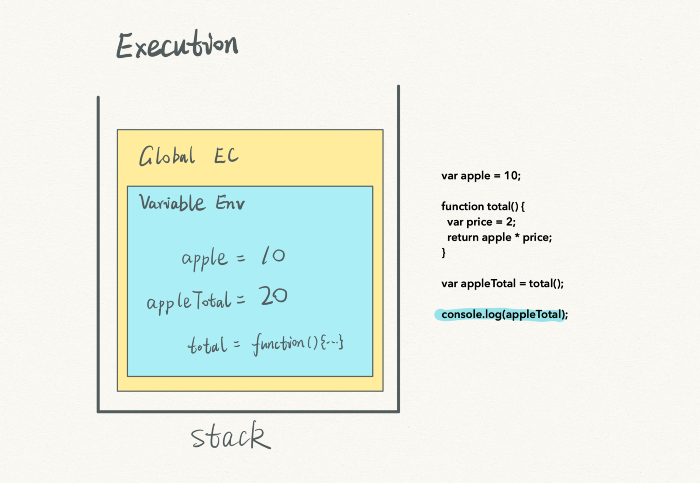 Execution
Global EC
Variable Env
apple = 10
appleTotal = 20
total = function(){...}
stack
var apple = 10;
function total() {
var price = 2;
return apple * price;
}
var appleTotal = total();
console.log(appleTotal);